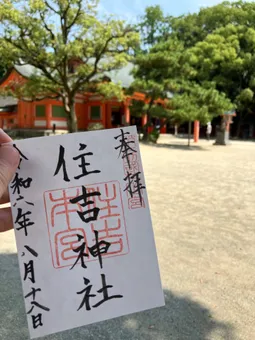 奉拝
住吉神社
令和六年八月十八日